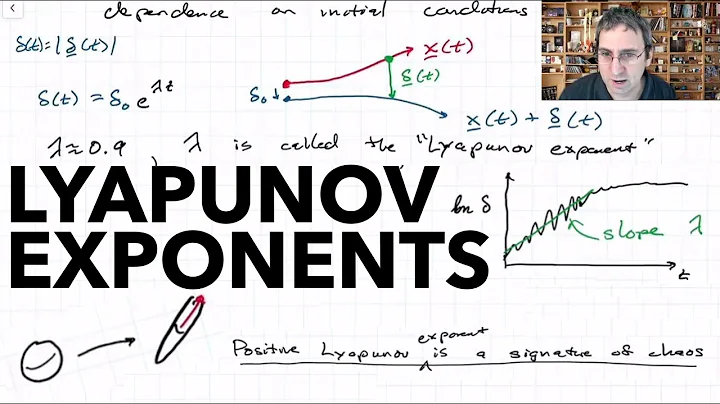 dependence on initial conditions
δ(t) = |δ(t)|
x(t)
δ(t)
δ(t) = δ₀ e^{λt}
δ₀
x(t) + δ(t)
λ ≈ 0.9, λ is called the "Lyapunov exponent"
LYAPUNOV
EXPONENTS
ln δ
slope λ
t
Positive Lyapunov exponent is a signature of chaos